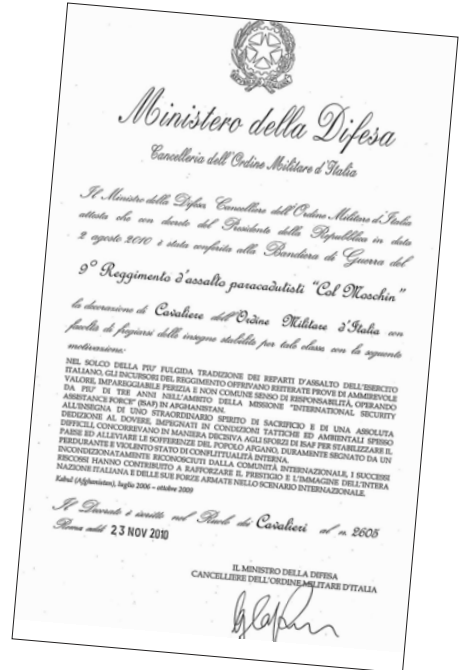 Ministero della Difesa
Cancelleria dell'Ordine Militare d'Italia
Il Ministro della Difesa, Cancelliere dell'Ordine Militare d'Italia
attesta che con decreto del Presidente della Repubblica in data
2 agosto 2010 è stata conferita alla Bandiera di Guerra del
9° Reggimento d'assalto paracadutisti "Col Moschin"
la decorazione di Cavaliere dell'Ordine Militare d'Italia con
facoltà di fregiarsi delle insegne stabilite per tale classe con la seguente
motivazione:
NEL SOLCO DELLA PIU' FULGIDA TRADIZIONE DEI REPARTI D'ASSALTO DELL'ESERCITO
ITALIANO, GLI INCURSORI DEL REGGIMENTO OFFRIVANO REITERATE PROVE DI AMMIREVOLE
VALORE, IMPAREGGIABILE PERIZIA E NON COMUNE SENSO DI RESPONSABILITÀ, OPERANDO
DA PIU' DI TRE ANNI NELL'AMBITO DELLA MISSIONE "INTERNATIONAL SECURITY
ASSISTANCE FORCE" (ISAF) IN AFGHANISTAN.
ALL'INSEGNA DI UNO STRAORDINARIO SPIRITO DI SACRIFICIO E DI UNA ASSOLUTA
DEDIZIONE AL DOVERE, IMPIEGNATI IN CONDIZIONI TATTICHE ED AMBIENTALI SPESSO
DIFFICILI, CONCORRIVANO IN MANIERA DECISIVA AGLI SFORZI DI ISAF PER STABILIZZARE IL
PAESE ED ALLEVIARE LE SOFFERENZE DEL POPOLO AFGANO, DURAMENTE SEGNATO DA UN
PERDURANTE E VIOLENTO STATO DI CONFLITTUALITÀ INTERNA.
INCONDIZIONATAMENTE RICONOSCIUTI DALLA COMUNITÀ INTERNAZIONALE, I SUCCESSI
RISCOSSI HANNO CONTRIBUITO A RAFFORZARE IL PRESTIGIO E L'IMMAGINE DELL'INTERA
NAZIONE ITALIANA E DELLE SUE FORZE ARMATE NELLO SCENARIO INTERNAZIONALE.
Kabul (Afghanistan), luglio 2006 – ottobre 2009
Il Decorato è iscritto nel Ruolo dei Cavalieri al n. 2605
Roma addì 23 NOV 2010
IL MINISTRO DELLA DIFESA
CANCELLIERE DELL'ORDINE MILITARE D'ITALIA